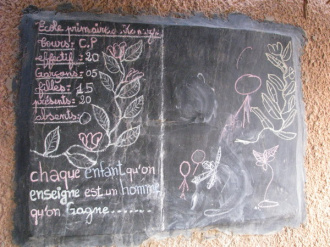 école primaire
Cours: C.P
effectif: 20
Garçons: 05
filles: 15
présents: 20
absents:
chaque enfant qu'on
enseigne est un homme
qu'on Gagne.......